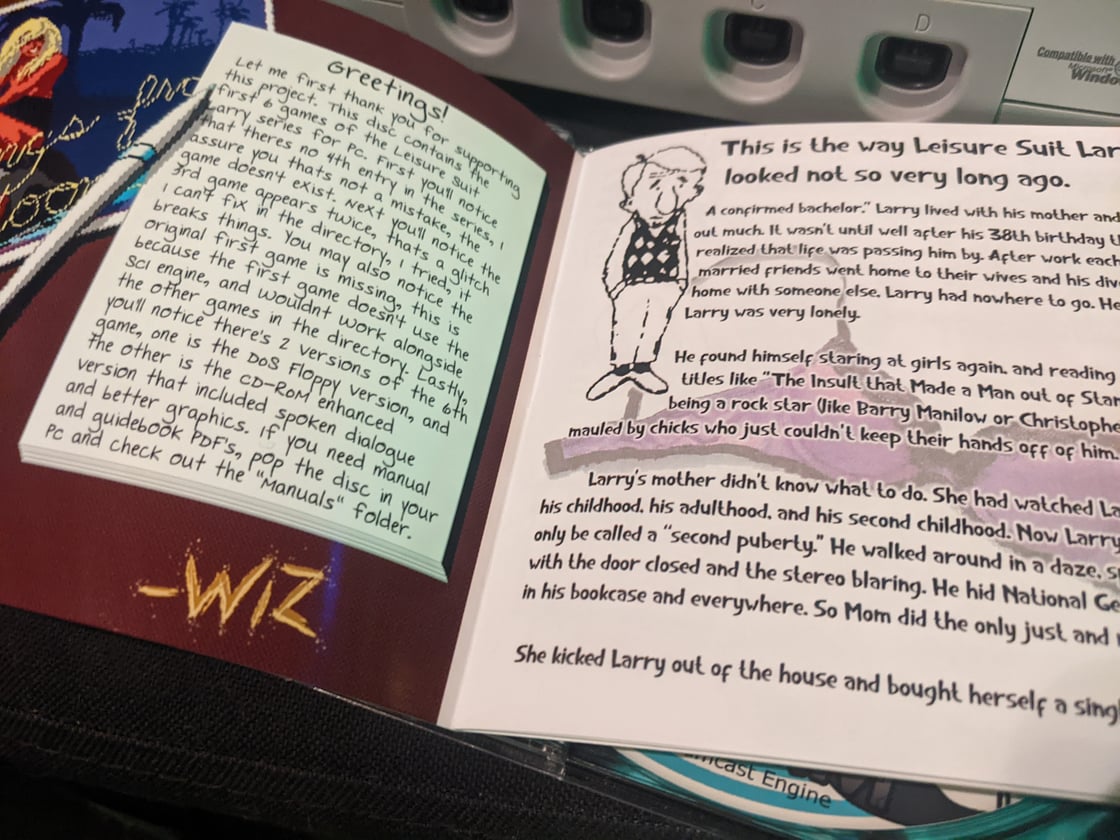 Greetings!
Let me first thank you for supporting
this project. This disc contains the
first 6 games of the Leisure Suit
Larry series for Pc. First you'll notice
that theres no 4th entry in the series, I
assure you thats not a mistake, the
game doesn't exist. Next you'll notice the
3rd game appears twice, that's a glitch
I can't fix in the directory, I tried, it
breaks things. You may also notice the
original first game is missing, this is
because the first game doesn't use the
SCI engine, and wouldnt work alongside
the other games in the directory. Lastly,
you'll notice there's 2 versions of the 6th
game, one is the DoS Floppy version, and
the other is the CD-RoM enhanced
version that included spoken dialogue
and better graphics. If you need manual
and guidebook PDF's, pop the disc in your
Pc and check out the "Manuals" folder.
-WiZ
This is the way Leisure Suit Lar
looked not so very long ago.
A confirmed bachelor." Larry lived with his mother and
out much. It wasn't until well after his 38th birthday t
realized that life was passing him by. After work each
married friends went home to their wives and his div
home with someone else. Larry had nowhere to go. He
Larry was very lonely.
He found himself staring at girls again. and reading
titles like "The Insult that Made a Man out of
being a rock star (like Barry Manilow or Christophe
mauled by chicks who just couldn't keep their hands off of him.
Larry's mother didn't know what to do. She had watched La
his childhood. his adulthood. and his second childhood. Now Larry
only be called a "second puberty." He walked around in a daze. s
with the door closed and the stereo blaring. He hid National Ge
in his bookcase and everywhere. So Mom did the only just and
She kicked Larry out of the house and bought herself a sing
C
D
Compatible with
Microsoft
Windo
mcast Engine